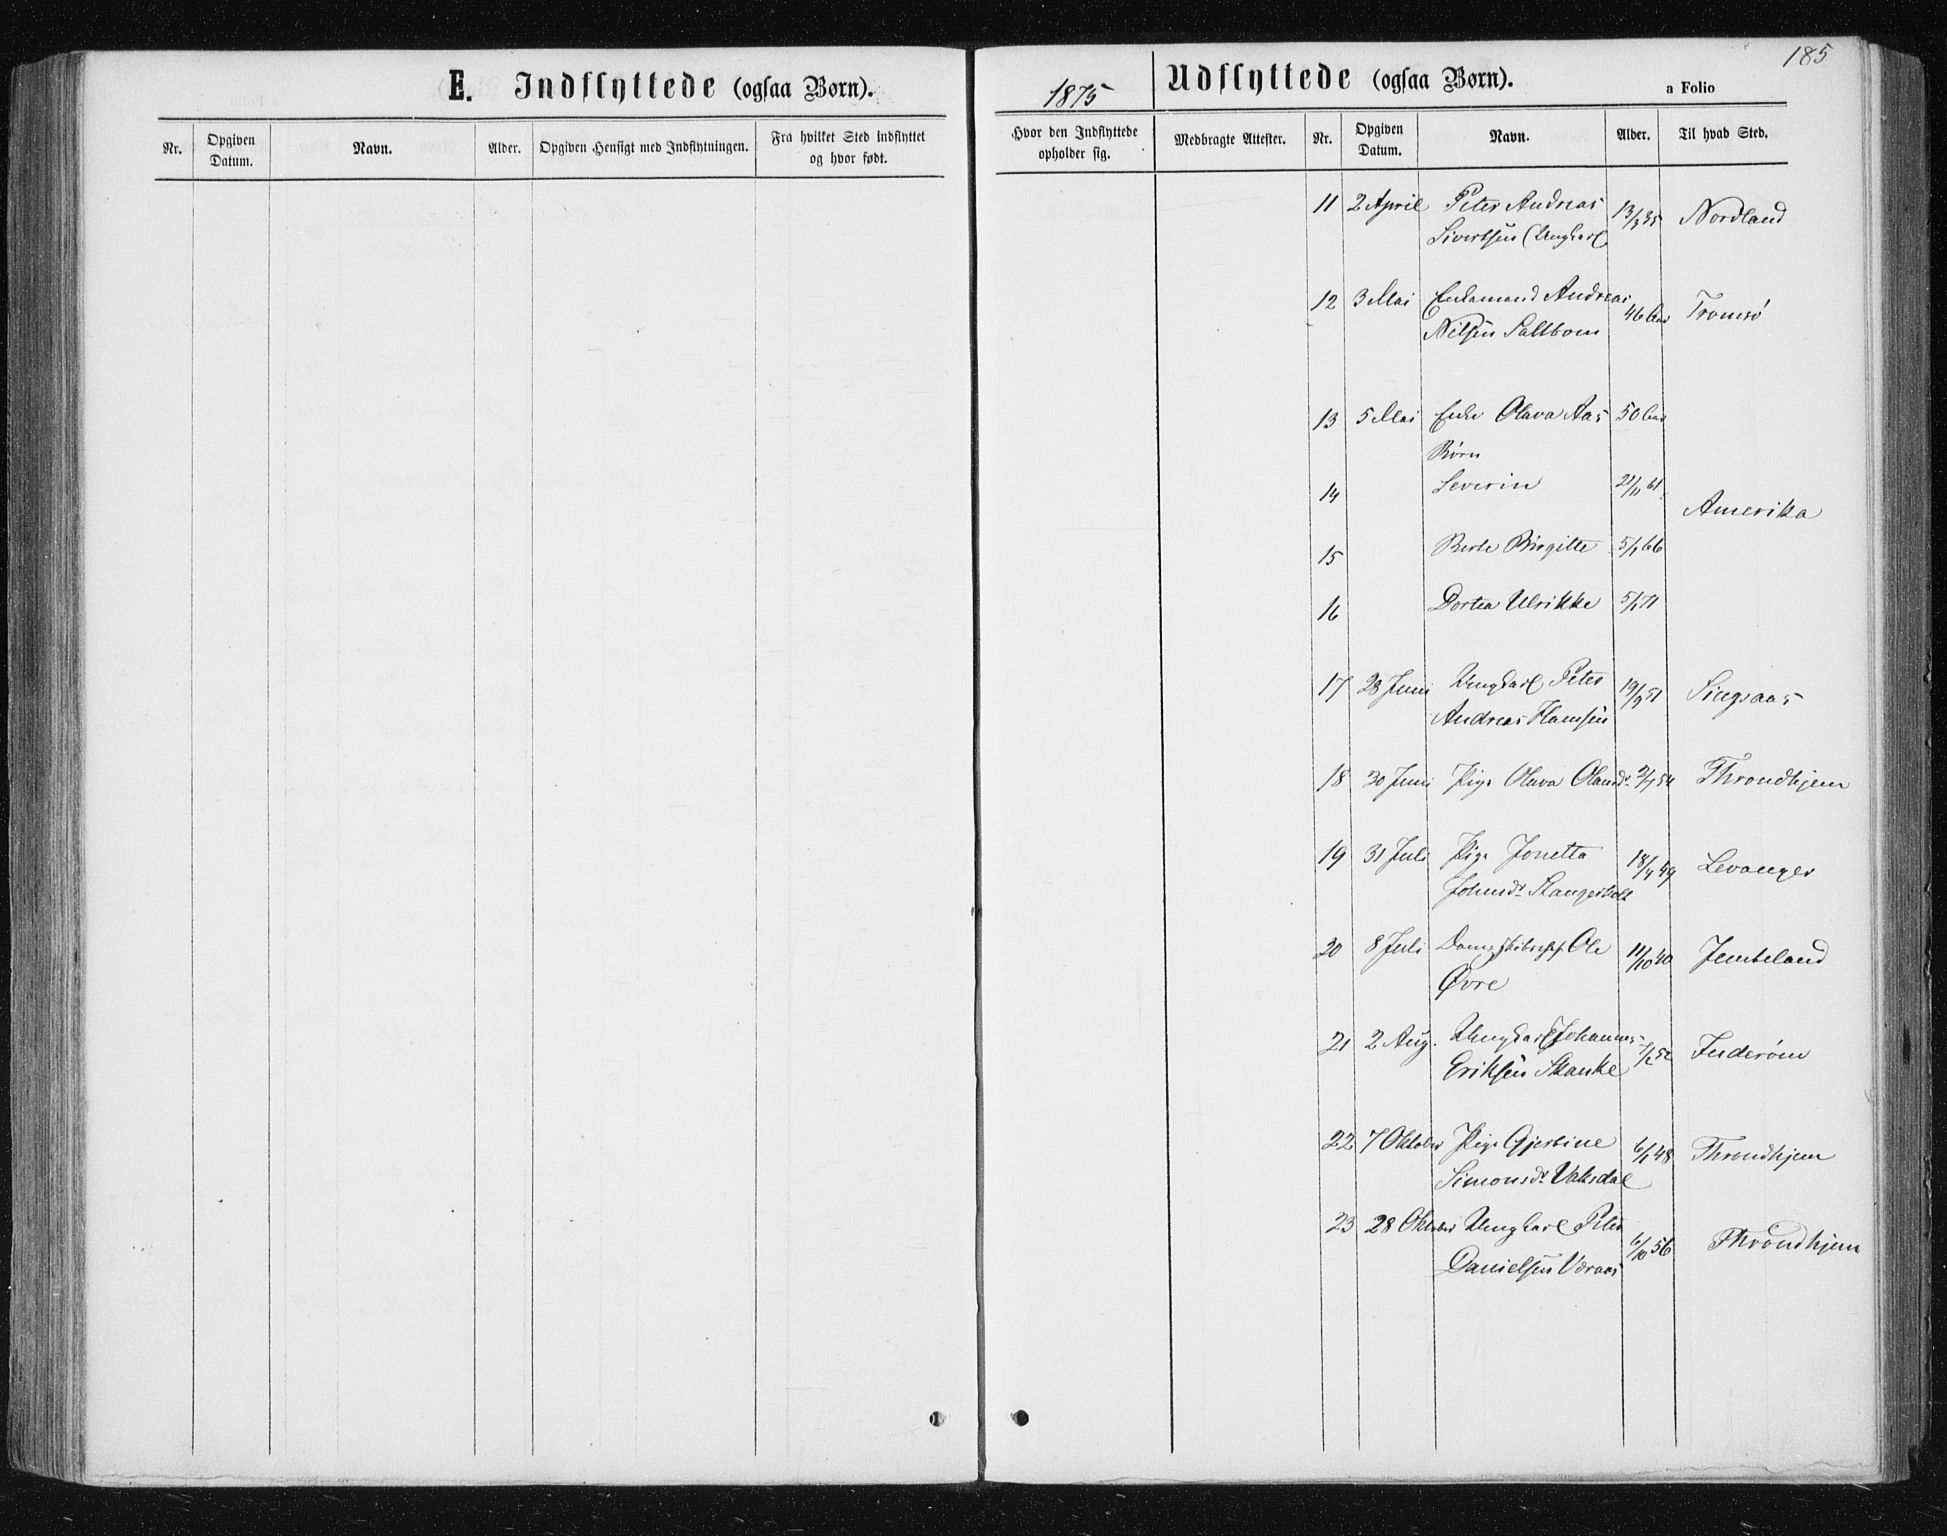 185
E. Indflyttede (ogsaa Børn).
1875
Udflyttede (ogsaa Børn).
a Folio
Nr.
Opgiven Datum.
Navn.
Alder.
Opgiven Hensigt med Indflytningen.
Fra hvilket Sted indflyttet og hvor født.
Hvor den Indflyttede opholder sig.
Medbragte Attester.
Nr.
Opgiven Datum.
Navn.
Alder.
Til hvad Sted.
11 2 April Peter Andreas 13/3 35 Nordland
Sivertsen (Ungkarl
12 3 Mai Enkemand Andreas 46 Aar Tromsø
Nilsen Saltbom
13 5 Mai Enke Olava Aas 50 Aar
Børn
14 Severin 21/11 61
Amerika
15 Berte Birgitte 5/1 66
16 Dortea Ulrikke 5/1 71
17 28 Juni Ungkarl Peter 19/9 51 Singsaas
Andreas Hansen
18 30 Juni Pige Olava Olausdr 2/1 54 Throndhjem
19 31 Juli Pige Jonetta 18/4 59 Levanger
Johnsdr Stangerholt
20 8 Juli Ole 11/10 40 Jemteland
Øvre
21 2 Aug. Ungkarl Johannes 52 Inderøen
Eriksen Skanke
22 7 Oktober Pige Gjertine 6/1 48 Throndhjem
Simonsdr Vaksdal
23 28 Oktober Ungkarl Peter 6/10 56 Throndhjem
Danielsen Væraas